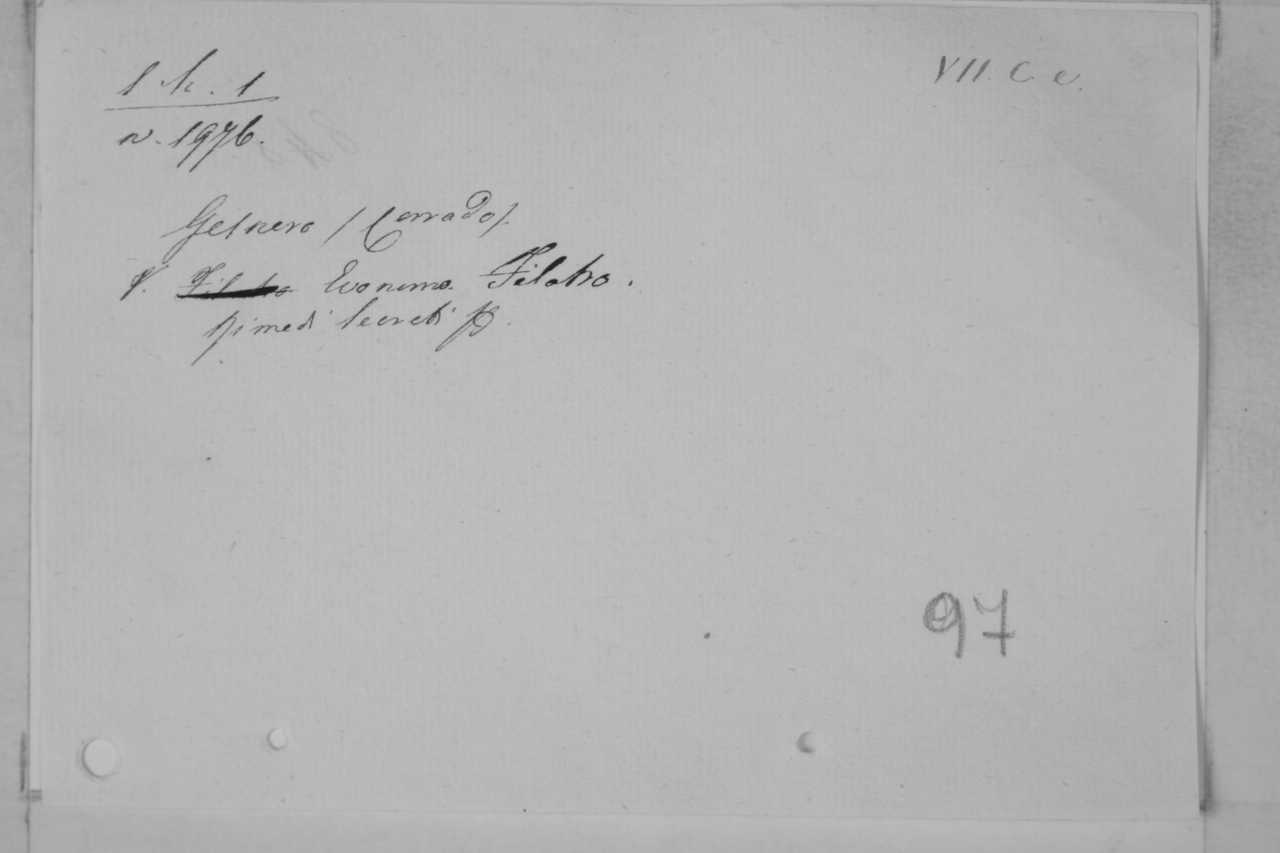 1. k. 1
VII. C. c.
n. 1976.
Gesnero (Corrado).
V. Filatro Evonimo Filatro.
Rimedi secreti
97